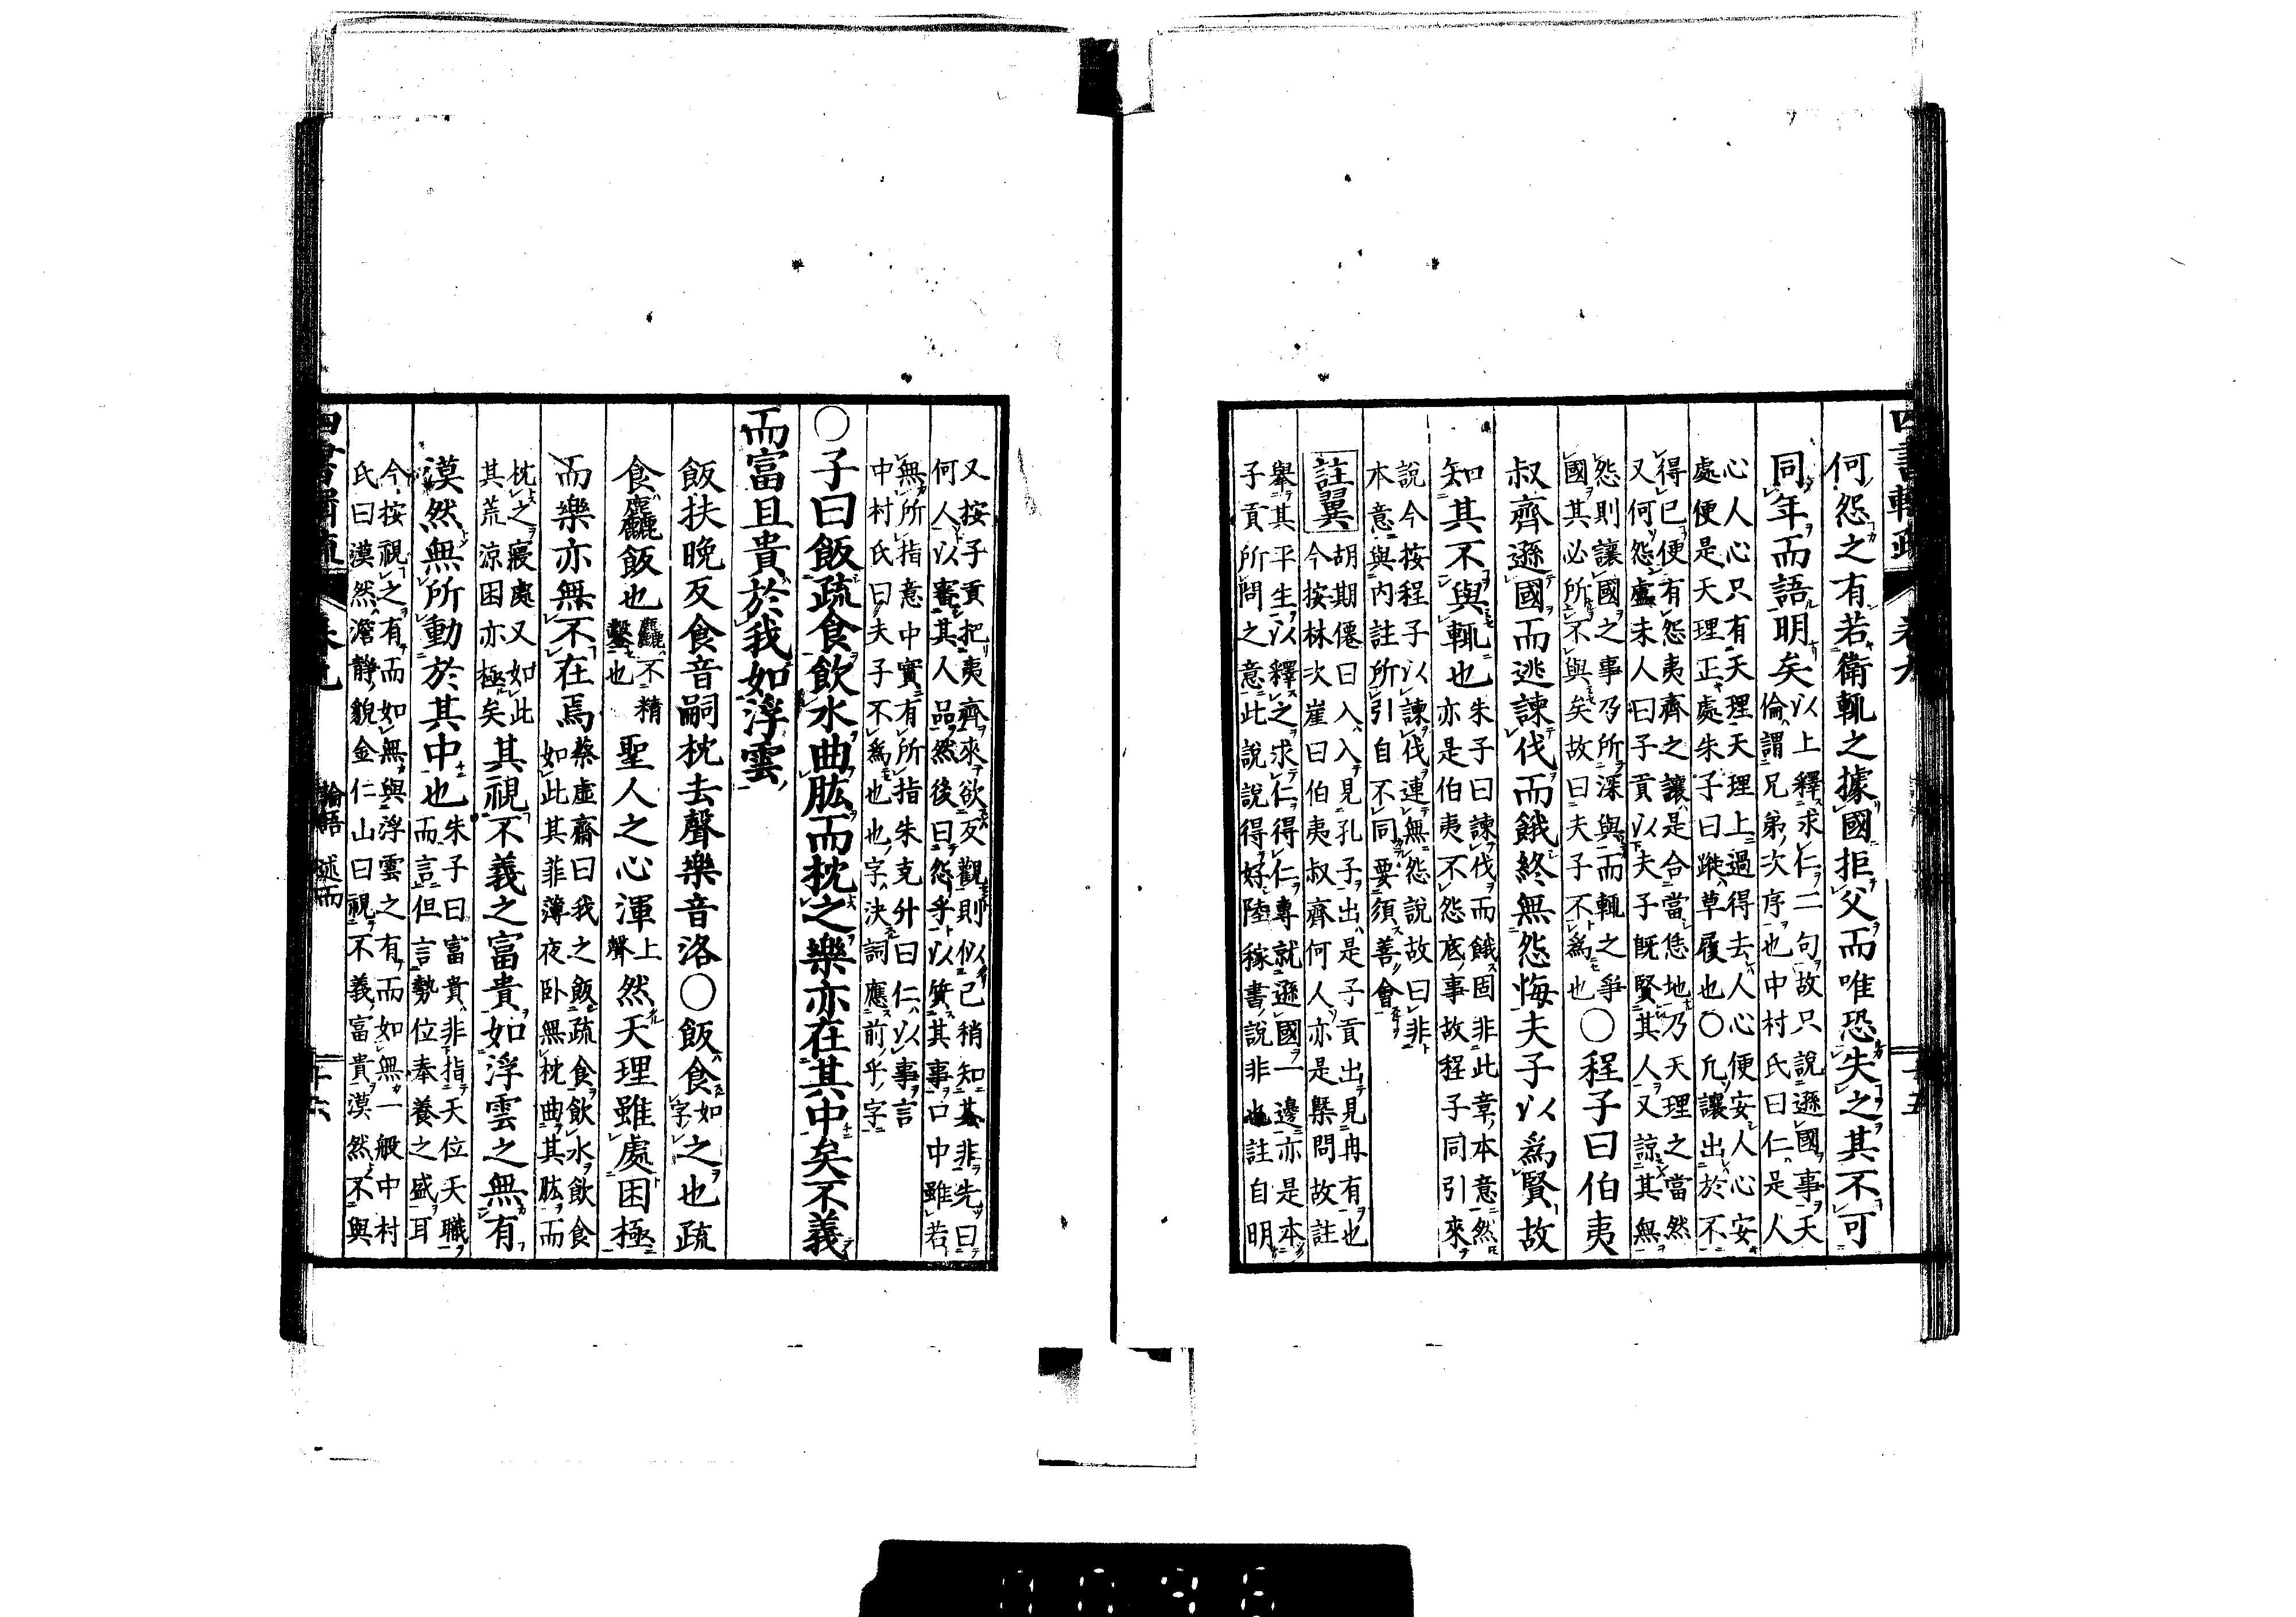 四書輯疏 卷九
何怨之有若衛輒之據國拒父而唯恐失之其不可
同年而語明矣以上釋求仁二句故只說遜國事天
倫謂兄弟次序也中村氏曰仁是人
心人心只有天理天理上過得去人心便安人心安
處便是天理正處朱子曰蹝草履也○凡讓出於不
得已便有怨夷齊之讓是合當恁地乃天理之當然
又何怨處未人曰子貢以夫子既賢其人又諒其無
怨則讓國之事乃所深與而輒之爭
國其必所不與矣故曰夫子不爲也○程子曰伯夷
叔齊遜國而逃諫伐而餓終無怨悔夫子以爲賢故
知其不與輒也朱子曰諫伐而餓固非此章本意然
亦是伯夷不怨底事故程子同引來
說今按程子以諫伐連無怨說故曰非
本意與內註所引自不同要須善會
註翼
胡期僊曰入入見孔子出是子貢出見冉有也
今按林次崖曰伯夷叔齊何人亦是槩問故註
舉其平生以釋之求仁得仁專就遜國一邊亦是本
子貢所問之意此說說得好陸稼書說非也註自明
又按子貢把夷齊來欲反觀則似已稍知其非先曰
何人以審其人品然後曰怨乎以質其事口中雖若
無所指意中實有所指朱克升曰仁以事言
中村氏曰夫子不爲也也字決詞應前乎字
○子曰飯疏食飲水曲肱而枕之樂亦在其中矣不義
而富且貴於我如浮雲
飯扶晚反食音嗣枕去聲樂音洛○飯食如字之也疏
食麤飯也麤不精
鑿也聖人之心渾上
聲然天理雖處困極
而樂亦無不在焉蔡虛齋曰我之飯疏食飲水飲食
如此其菲薄夜卧無枕曲其肱而
枕之寢處又如此
其荒涼困亦極矣其視不義之富貴如浮雲之無有
漠然無所動於其中也朱子曰富貴非指天位天職
而言但言勢位奉養之盛耳
今按視之有而如無與浮雲之有而如無一般中村
氏曰漠然澹靜貌金仁山曰視不義富貴漠然不與
論語 述而